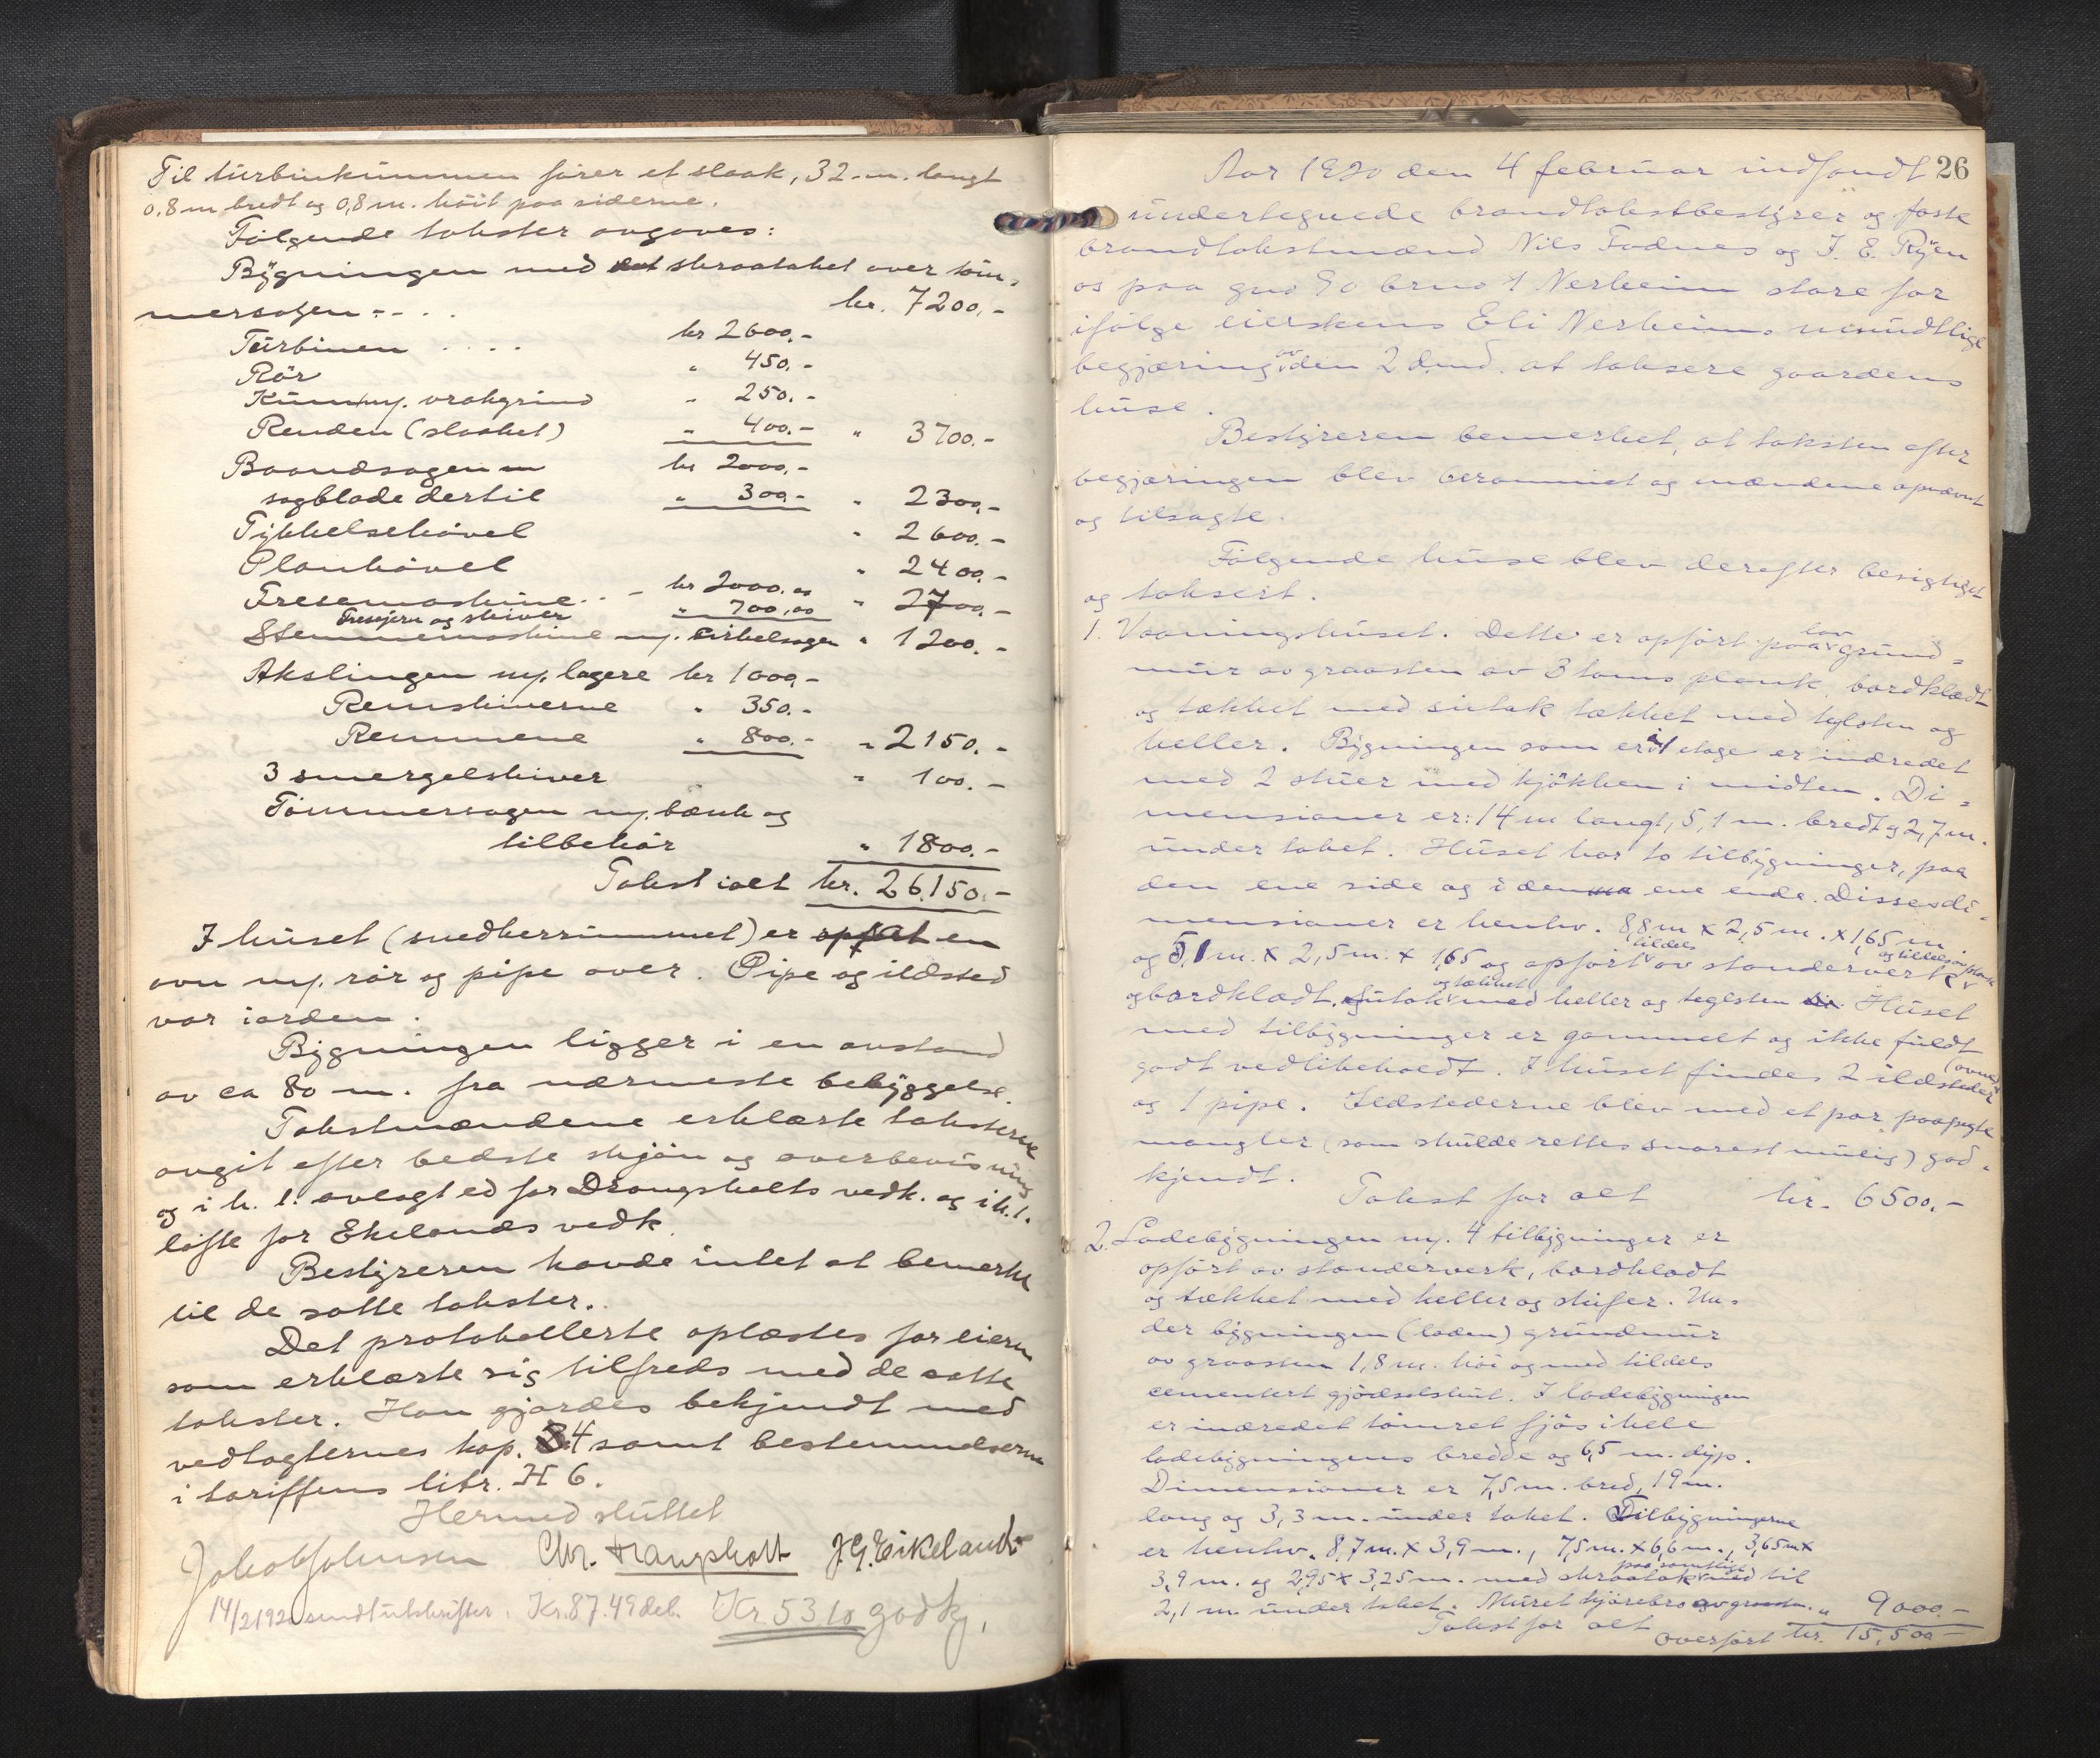 Til turbinkummen fører et slaak, 32 m. langt
0.8 m bredt og 0,8 m. høit paa siderne.
Følgende takster avgaves:
Bygningen med skraataket over tøm-
mersagen - - . . kr. 7200.-
Turbinen . . . . kr 2600.-
Rör " 450.-
Kum m/. vrakgrind " 250.-
Renden (slaaket) " 400.- " 3700.-
Baandsagen m kr 2000.-
sagblade dertil " 300.- " 2300.-
Tykkelsehövel " 2600.-
Planhövel " 2400.-
Fresemaskine . . - kr 2000.00
Fresejern og skiver " 700,00 " 2700.-
Stemmemaskine m/. cirkelsagen " 1200.-
Akslingen m/. lagere kr 1000.-
Remskiverne " 350.-
Remmene " 800.- " 2150.-
3 smergelskiver " 100.-
Tømmersagen m/. bænk og
tilbehör " 1800.-
Takst ialt kr. 26.150.-
I huset (snedkerrummet) er en
ovn m/. rör og pipe over. Pipe og ildsted
var iorden.
Bygningen ligger i en avstand
av ca 80 m. fra nærmeste bebyggelse.
Takstmændene erklærte taksterne
avgit efter bedste skjøn og overbevisning
og i h. t. avlagt ed for Drangsholts vedk. og i h. t.
løfte for Ekelands vedk.
Bestyreren havde intet at bemerke
til de satte takster.
Det protokollerte oplæstes for eieren
som erklærte sig tilfreds med de satte
takster. Han gjordes bekjendt med
vedtægternes kap. 4 samt bestemmelserne
i tariffens litr. H 6.
Hermed sluttet
Jakob Johnsen Chr. Drangsholt J G. Eikeland
14/2 1920 sendt utskrifter. Kr. 87.49 deb. Kr. 53.10 godkj.
26
Aar 1920 den 4 februar indfandt
undertegnede brandtakstbestyrer og faste
brandtakstmænd Nils Fodnes og J. E. Ryen
os paa gno 90 brno 1 Nerheim store for
ifölge eierskens Eli Nerheims mundtlige
begjæring av den 2 d.md. at taksere gaardens
huse.
Bestyreren bemerket, at taksten efter
begjæringen blev berammet og mændene opnævnt
og tilsagte.
Følgende huse blev derefter besigtiget
og taksert.
1. Vaaningshuset. Dette er opfört paa lav grund-
mur av graasten av 3 toms plank, bordklædt
og tækket med sutak tækket med teglsten og
heller. Bygningen som er i 1 etage er indredet
med 2 stuer med kjökken i midten. Di-
mensioner er: 14 m langt, 5,1 m. bredt og 2,7 m.
under taket. Huset har to tilbygninger, paa
den ene side og i den ene ende. Disses di-
mensioner er henhv. 8,8 m x 2,5 m. x 1,65 m.
og 5,1 m. x 2,5 m. x 1,65 og opfört tildels av standerverk og tildels av plank
og bordklædt. Sutak og tækket med heller og teglsten. Huset
med tilbygninger er gammelt og ikke fuldt
godt vedlikeholdt. I huset findes 2 ildsteder (ovner)
og 1 pipe. Ildstederne blev med et par paapegte
mangler (som skulde rettes snarest mulig) god-
kjendt.
Takst for alt kr. 6500.-
2. Ladebygningen m/. 4 tilbygninger er
opfört av standerverk, bordklædt
og tækket med heller og skifer. Un-
der bygningen (laden) grundmur
av graasten 1,8 m. höi og med tildels
cementert gjödselskjul. I ladebygningen
er indredet tömret fjös i hele
ladebygningens bredde og 6,5 m. dyp.
Dimensioner er 7,5 m. bred, 19 m.
lang og 3,3 m. under taket. Tilbygningerne
er henhv. 8,7 m. x 3,9 m., 7,5 m. x 6,6 m., 3,65 m x
3,9 m. og 2,95 x 3,25 m. med skraatak paa samtlige med til
2,1 m. under taket. Muret kjörebro av graasten.
Takst for alt " 9000.-
Overfört kr. 15,500 -